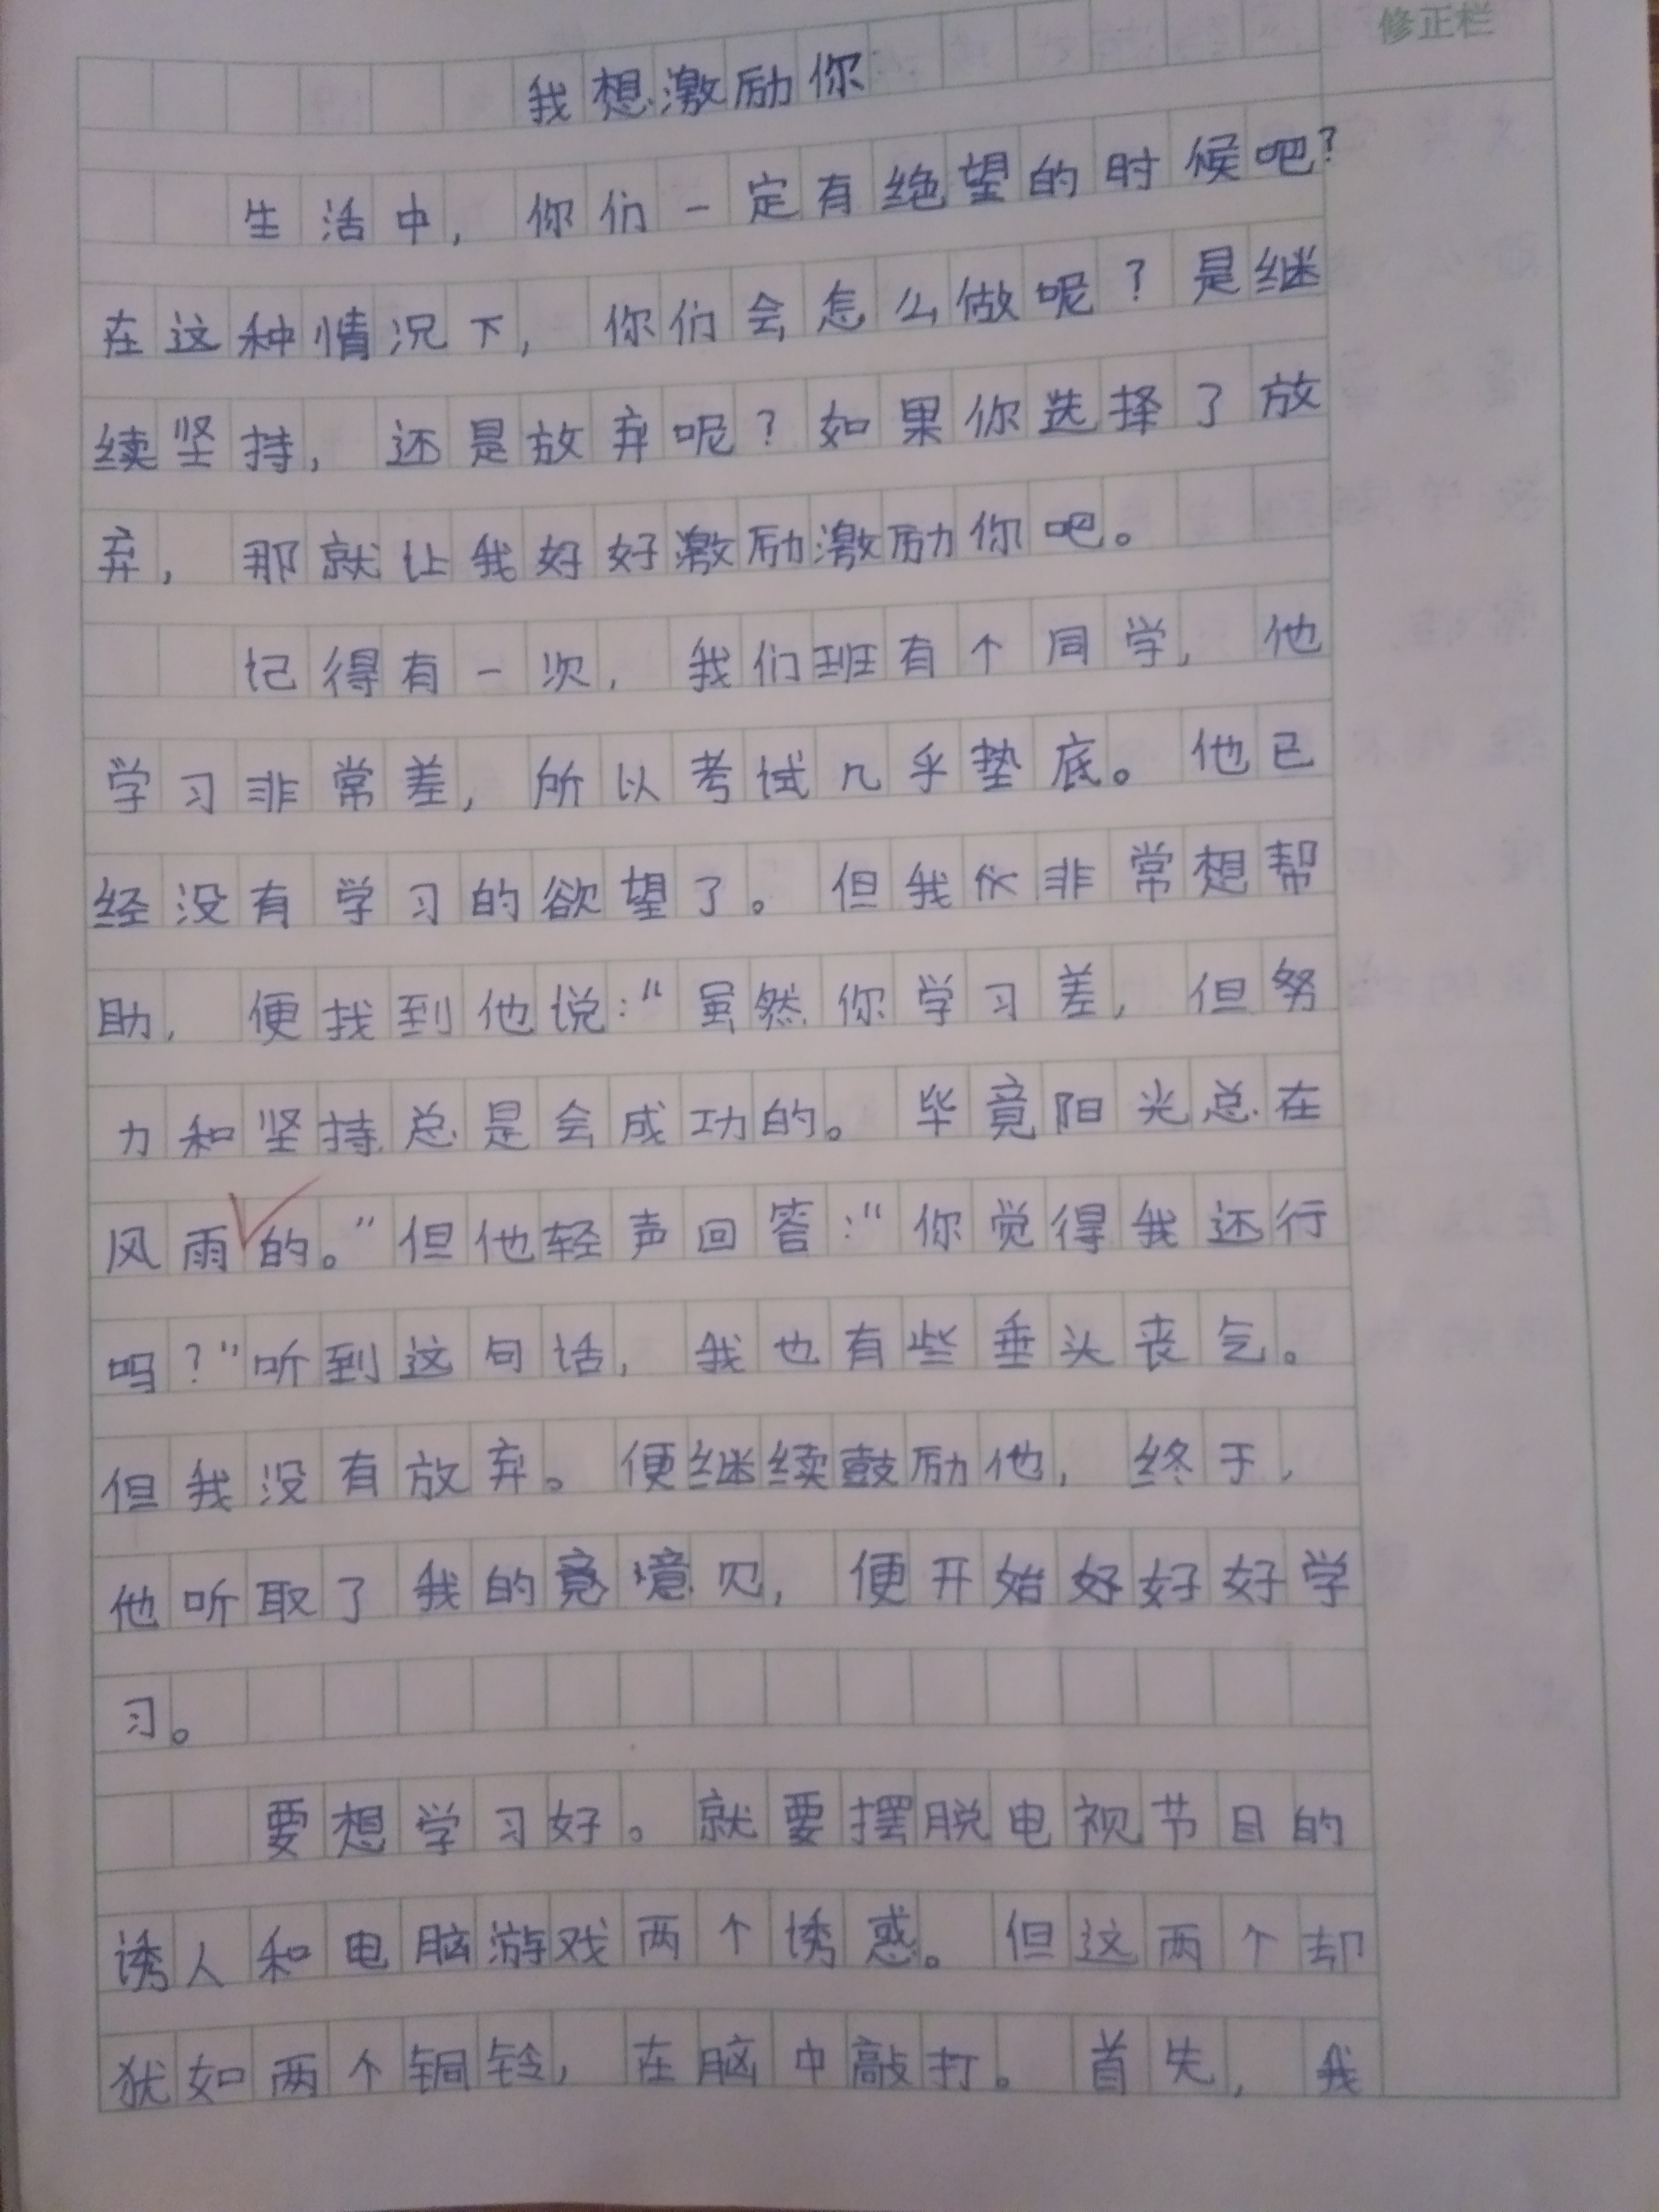 修正栏
我想激励你
生活中，你们一定有绝望的时候吧？
在这种情况下，你们会怎么做呢？是继
续坚持，还是放弃呢？如果你选择了放
弃，那就让我好好激励激励你吧。
记得有一次，我们班有个同学，他
学习非常差，所以考试几乎垫底。他已
经没有学习的欲望了。但我非常想帮
助，便找到他说：“虽然你学习差，但努
力和坚持总是会成功的。毕竟阳光总在
风雨的。”但他轻声回答：“你觉得我还行
吗？”听到这句话，我也有些垂头丧气。
但我没有放弃。便继续鼓励他，终于，
他听取了我的意见，便开始好好好学
习。
要想学习好。就要摆脱电视节目的
诱人和电脑游戏两个诱惑。但这两个却
犹如两个铜铃，在脑中敲打。首先，我